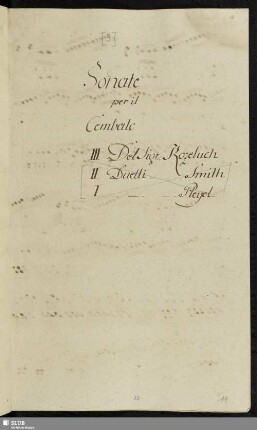 [3]
Sonate
per il
Cembalo
III Del Sigr. Kozeluch
II Duetti Smith
I Pleyel
SLUB